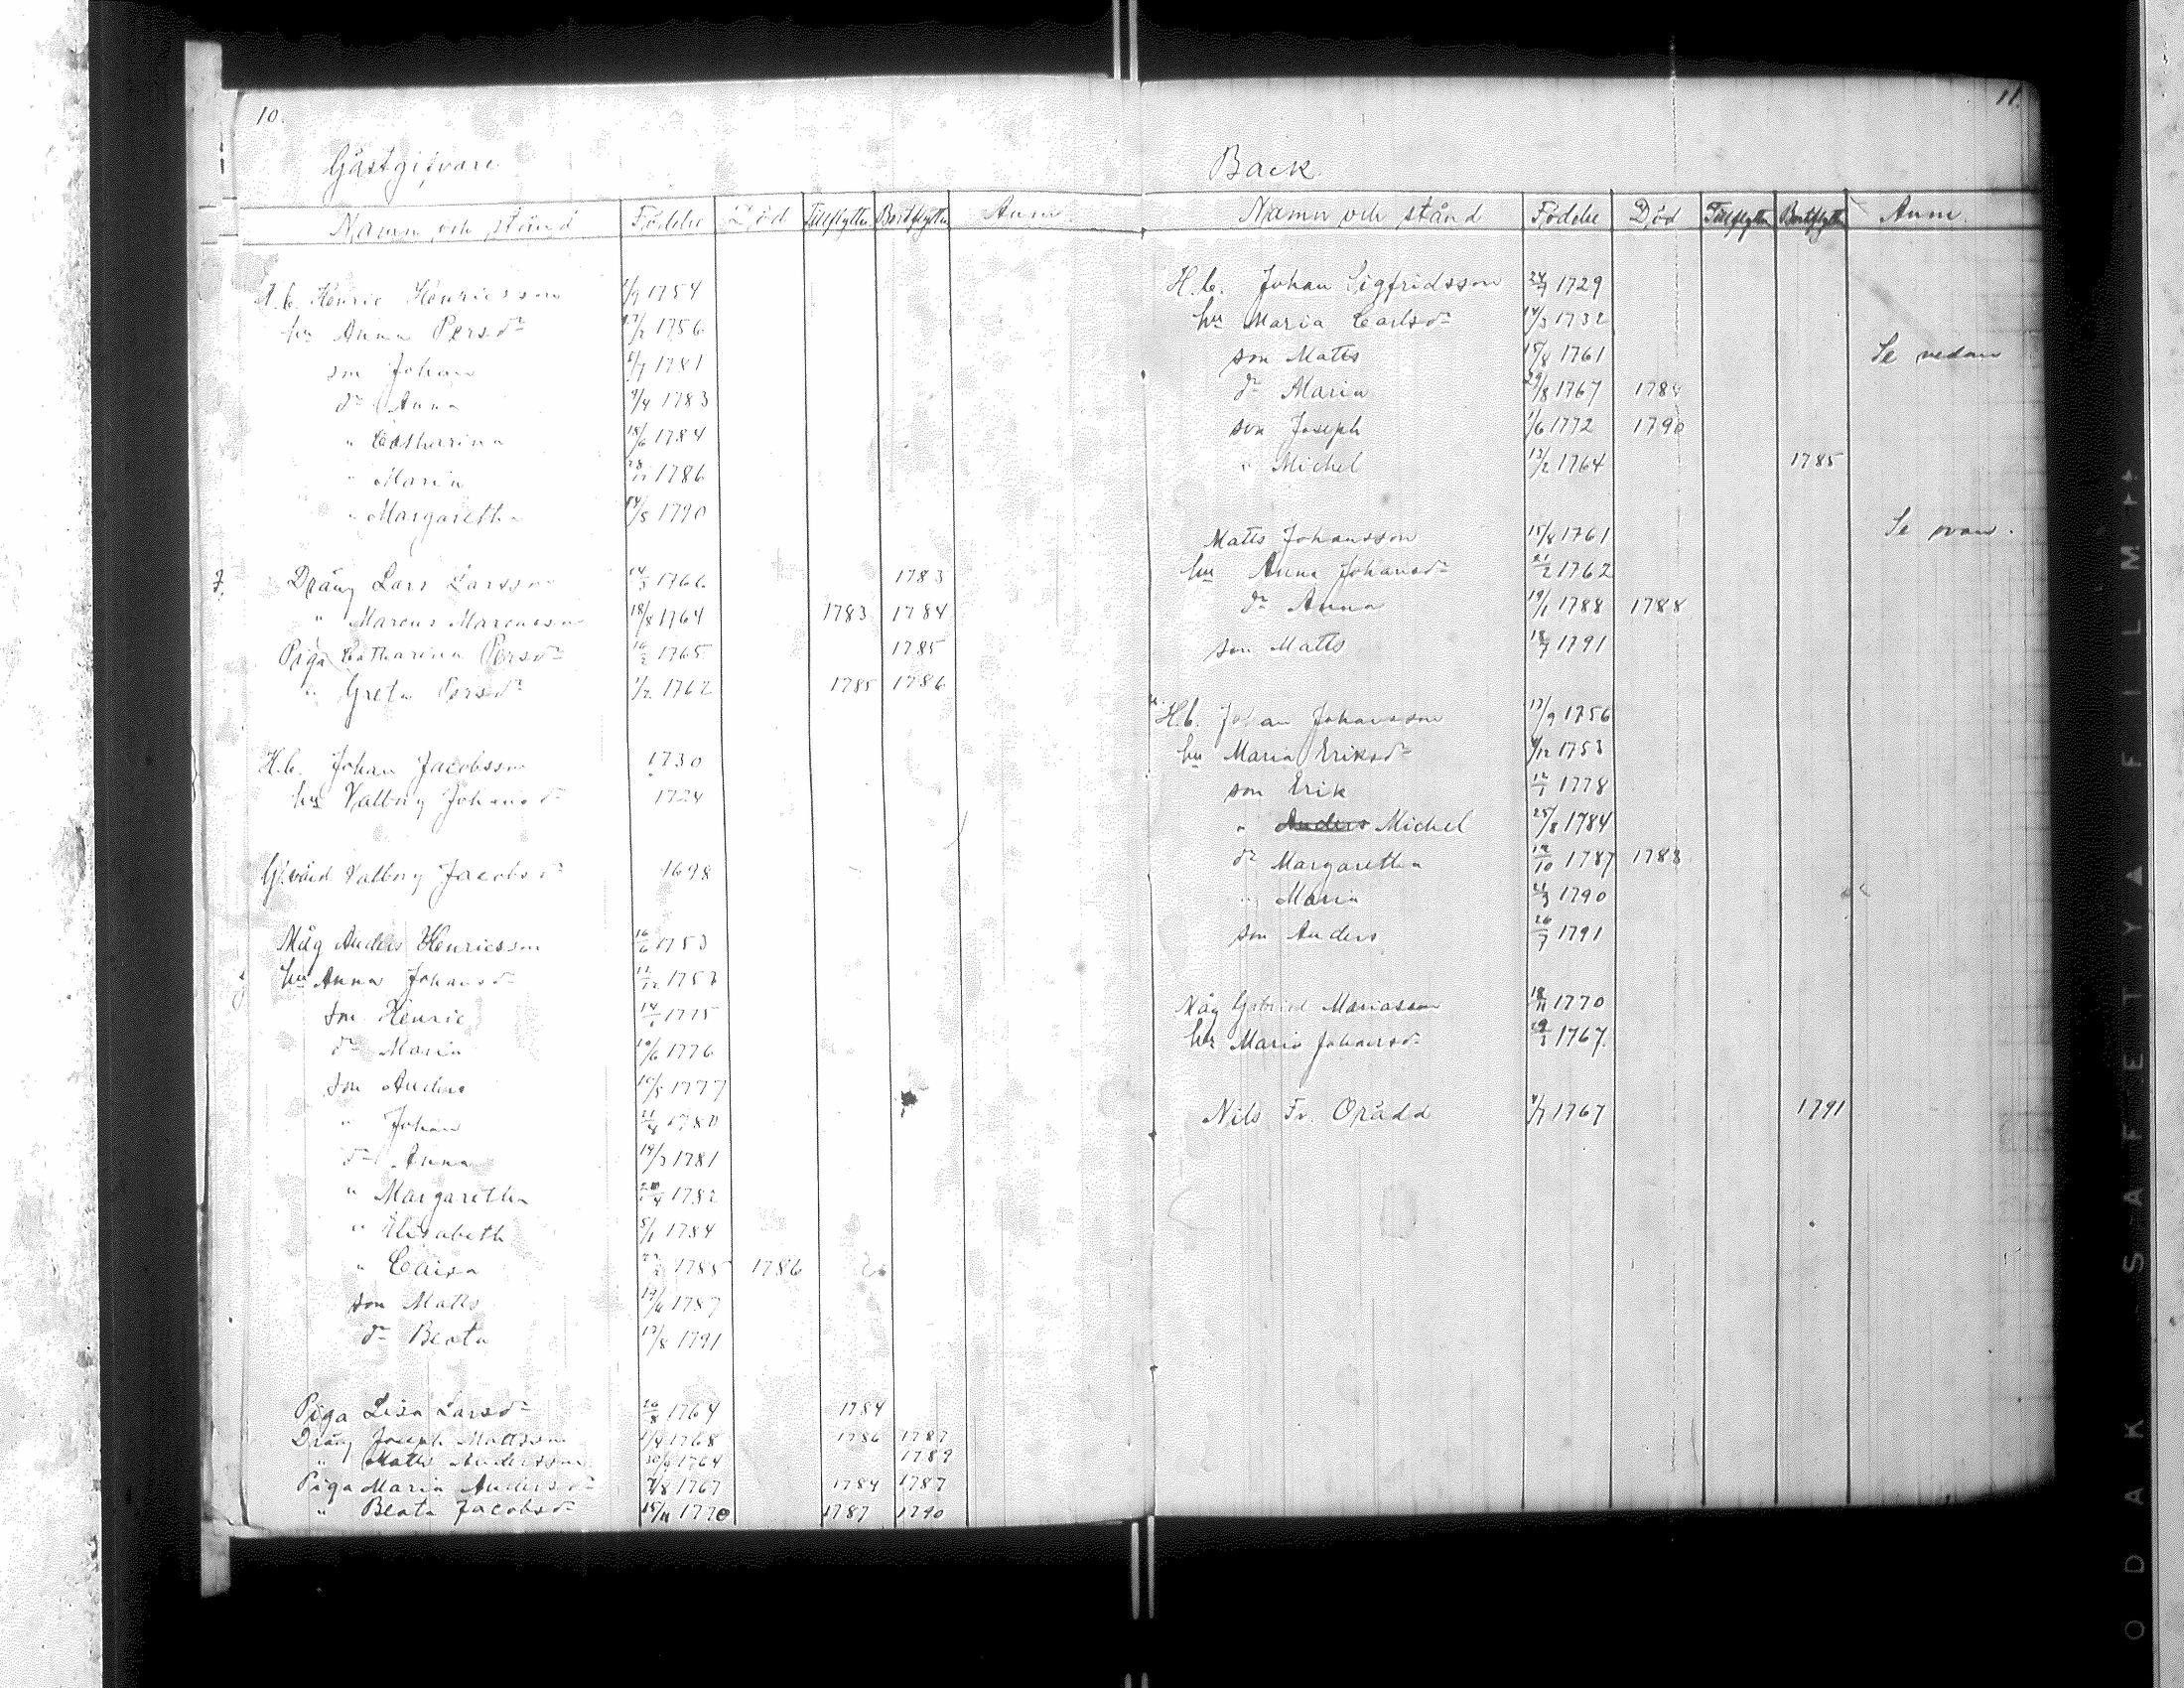 10.
Gästgifvare
Namn och stånd Födde Död Tillflyttn Bortflyttn Anm.
H.b. Henric Henricsson 1754
hu Anna Persdr 1756
son Johan 1781
dr Anna 9/4 1783
" Catharina 18/6 1784
" Maria 1786
" Margaretha 1790
Dräng Lars Larsson 1766 1783
" Marcus Marcusson 18/8 1764 1783 1784
Piga Catharina Persdr 1765 1785
" Greta Persdr 1/2 1762 1785 1786
H.b. Johan Jacobsson 1730
hu Valborg Johansdr 1724
Valborg Jacobsdr 1698
Måg Anders Henricsson 16/6 1753
hu Anna Johansdr
son Henric 1775
dr Maria 10/6 1776
son Anders 10/5 1777
" Johan 1780
dr Anna 19/3 1781
" Margaretha 1782
" Elisabeth 5/1 1784
" Caisa 1785 1786
son Matts 1787
dr Beata 17/8 1791
Piga Lisa Larsdr 26/8 1764 1784
Dräng Joseph Mattsson 1/4 1768 1786 1787
" Matts Andersson 30/9 1764 1789
Piga Maria Andersdr 7/8 1767 1784 1787
" Beata Jacobsdr 15/11 1770 1787 1790
11.
Back
Namn och stånd Födde Död Tillflyttn Bortflyttn Anm.
H.b. Johan Sigfridsson 1729
hu Maria Carlsdr 14/3 1732
son Matts 15/8 1761 Se nedan
dr Maria 29/8 1767 1784
son Joseph 1/6 1772 1790
" Michel 13/2 1764 1785
Matts Johansson 15/8 1761 Se ovan.
hu Anna Johansdr 21/2 1762
dr Anna 19/1 1788 1788
son Matts 18/7 1791
H.b. Johan Johansson 17/9 1756
hu Maria Eriksdr 1753
son Erik 12/1 1778
" Anders Michel 25/8 1784
dr Margaretha 12/10 1787 1788
" Maria 1790
son Anders 26/7 1791
Måg Gabriel Mariasson 18/11 1770
hu Maria Johansdr 1767
Nils Fr. Orädd 1767 1791
KODAK SAFETY ▲ FILM